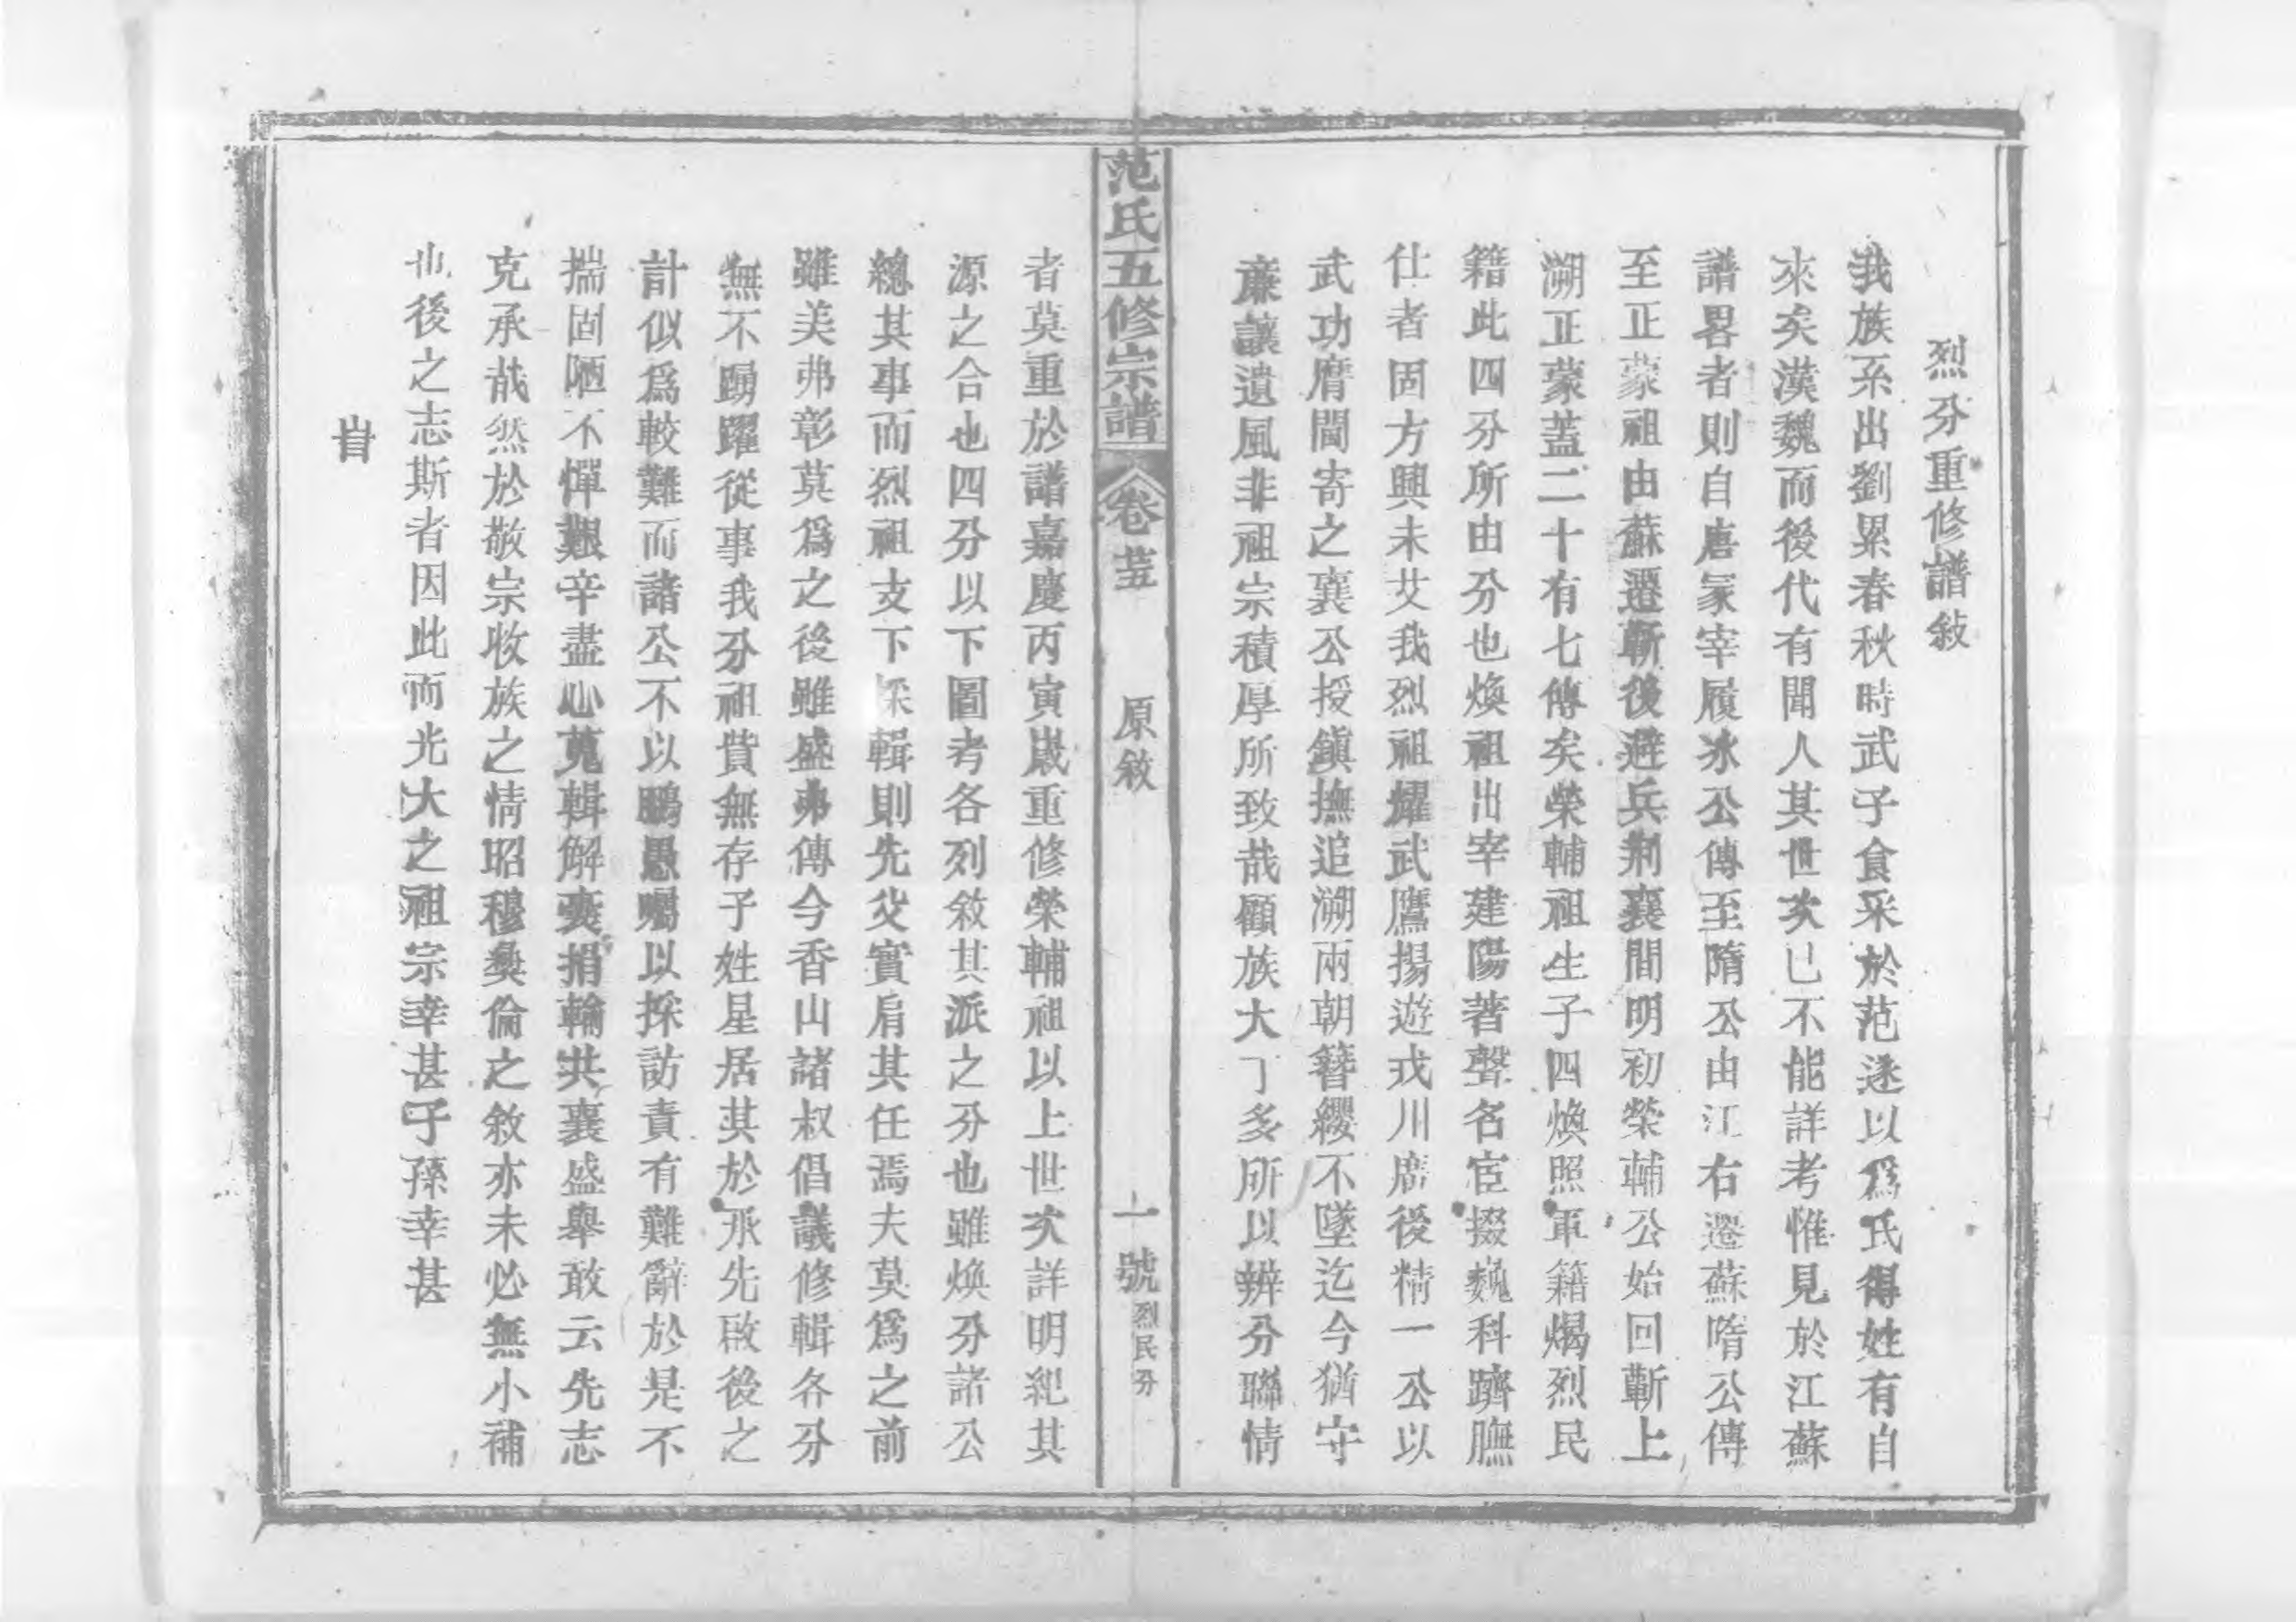 烈分重修譜敍
我族系出劉累春秋時武子食采於范遂以爲氏得姓有自
來矣漢魏而後代有聞人其世次已不能詳考惟見於江蘇
譜畧者則自唐冢宰履冰公傳至隋公由江右遷蘇隋公傳
至正蒙祖由蘇遷蘄後避兵荆襄間明初榮輔公始回蘄上
溯正蒙蓋二十有七傳矣榮輔祖生子四煥照軍籍焬烈民
籍此四分所由分也煥祖出宰建陽著聲名宦掇巍科躋膴
仕者固方興未艾我烈祖耀武鷹揚遊戎川廣後精一公以
武功膺閫寄之襄公授鎮撫追溯兩朝簪纓不墜迄今猶守
廉讓遺風非祖宗積厚所致哉顧族大丁多所以辨分聯情
范氏五修宗譜 卷茁 原敘 一號 烈民分
者莫重於譜嘉慶丙寅歲重修榮輔祖以上世次詳明紀其
源之合也四分以下圖考各列敘其派之分也雖煥分諸公
總其事而烈祖支下採輯則先父實肩其任焉夫莫爲之前
雖美弗彰莫爲之後雖盛弗傳今香山諸叔倡議修輯各分
無不踴躍從事我分祖貲無存子姓星居其於承先啟後之
計似爲較難而諸公不以鵬愚囑以採訪責有難辭於是不
揣固陋不憚艱辛盡心蒐輯解囊捐輸共襄盛舉敢云先志
克承哉然於敬宗收族之情昭穆彝倫之敘亦未必無小補
也後之志斯者因此而光大之祖宗幸甚子孫幸甚
旹